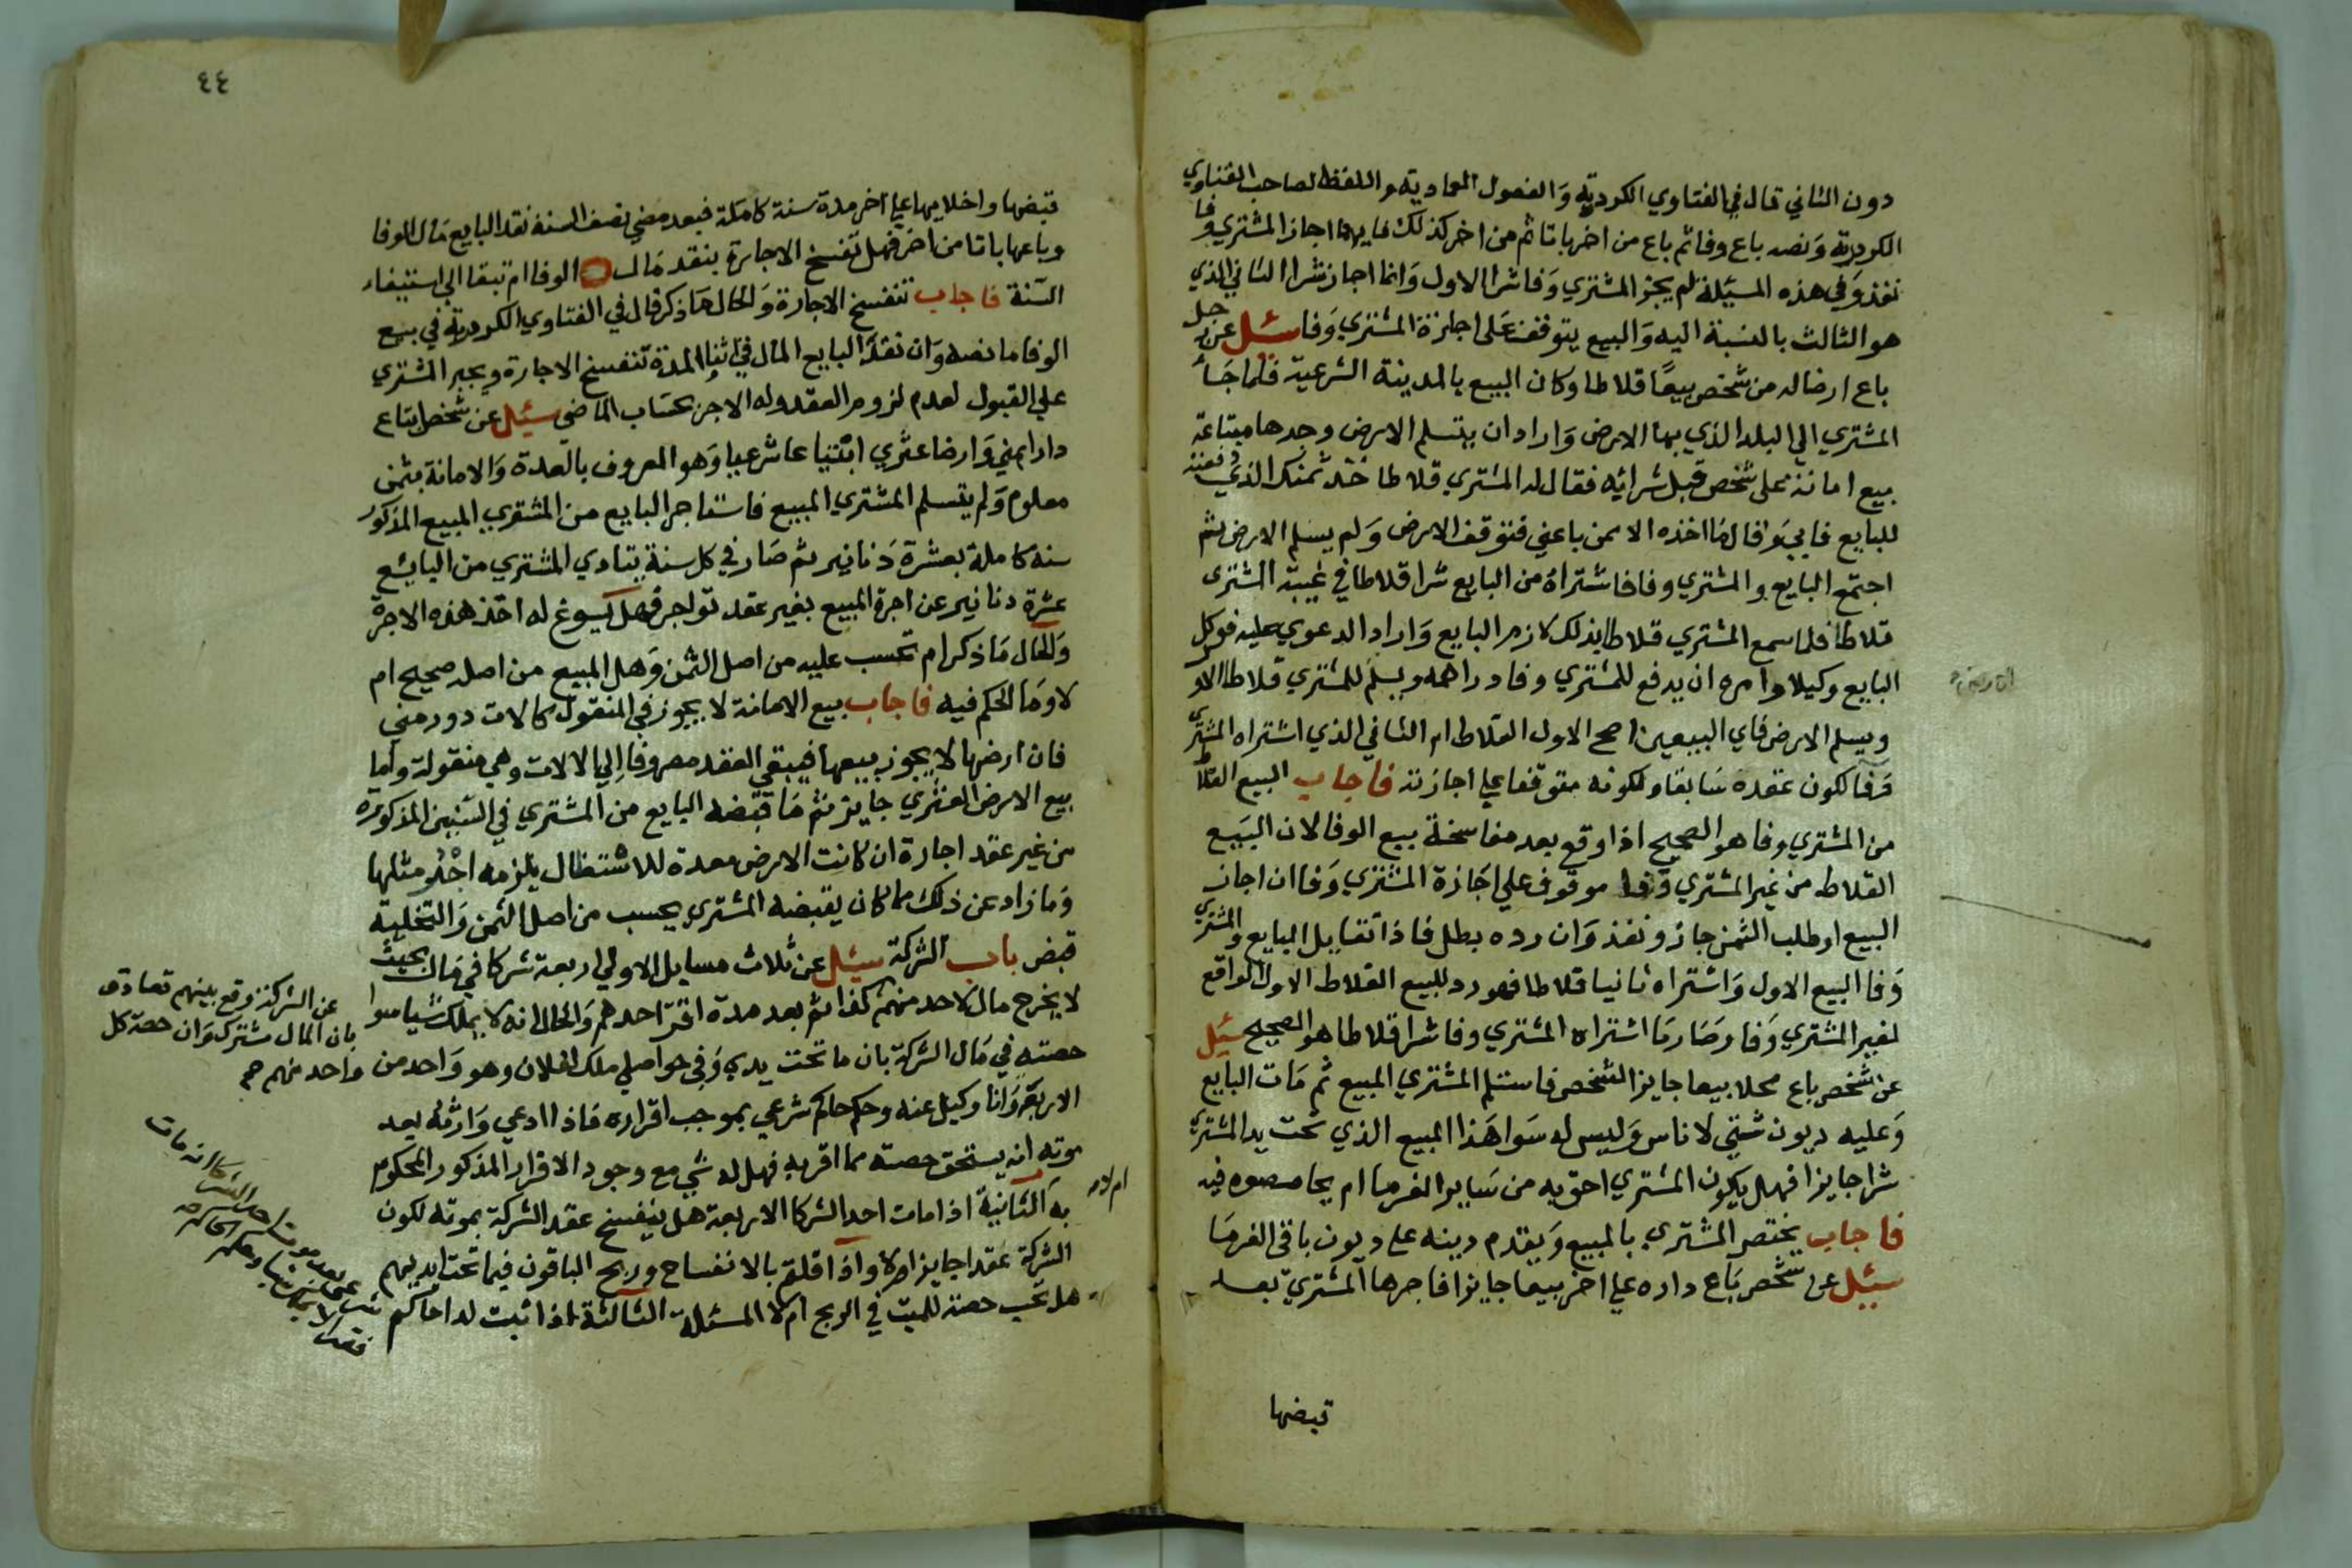 دون الثاني قال في الفتاوي الكردرية وَالفصول العمادية واللفظ لصاحب الفتاوي
الكردرية وَنصه باع وفا ثم باع من اخر باتا ثم من اخر كذلك فايهما اجاز المشتري وفا
نفذ وَفي هذه المسيئلة لم يجز المشتري وَفا شرا الاول وَانما اجاز شرا الثاني الذي
هو الثالث بالنسبة اليه وَالبيع يتوقف عَلى اجازة المشتري وَفا سئل عن رجل
باع ارضا له من شخص بيعًا قلاطا وكان البيع بالمدينة الشرعية فلما جَا
المشتري الي البلد الذي بها الارض وَاراد ان يتسلم الارض وجدها مبتاعة
بيع امانة على شخص قبل شرائه فقال له المشتري قلاطا خذ ثمنك الذي دفعته
للبايع فابيَ وَقال مَا اخذه الا ممن باعني فتوقف الارض وَلم يسلم الارض ثم
اجتمع البايع والمشتري وفا فاشتراهُ من البايع شرا قلاطا في غيبة المشتري
قلاطا فلما سمع المشتري قلاطا بذلك لازم البايع وَاراد الدعوي عليه فوكل
البايع وكيلا وامره ان يدفع للمشتري وفا دراهمه ويسلم للمشتري قلاطا الاو
ويسلم الارض فاي البيعين اصح الاول القلاط ام الثاني الذي اشتراه المشتري
وَفا لكون عقده سَابقا ولكونه متوقفا علي اجازته فاجاب البيع القلا
من المشتري وفا هو الصحيح اذا وقع بعد مفاسخة بيع الوفا لان البَيع
القلاط من غير المشتري وَفا موقوف علي اجَازة المشتري وَفا ان اجاز
البيع او طلب الثمن جاز ونفذ وَان رده بطل فاذا تقايل البايع والمشتري
وَفا البيع الاول وَاشتراه ثانيا قلاطا فهو رد للبيع القلاط الاول الواقع
لغير المشتري وَفا وصَار مَا اشتراه المشتري وفا شرا قلاطا هو الصحيح سئل
عن شخص باع محلا بيعا جايزا لشخص فاستلم المشتري المبيع ثم مَات البايع
وَعليه ديون شتي لاناس وَليس له سَوا هَذا المبيع الذي تحت يد المشتري
شرا جايزا فهل يكون المشتري احق به من سَاير الغرما ام يحاصصوه فيه
فاجاب يختص المشتري بالمبيع وَيقدم دينه على ديون باقي الغرمَا
سئيل عن شخص بَاع داره علي اخر بيعا جايزا فاجرها المشتري بعد
قبضها
٤٤
قبضها واخلايها علي آخر مدة سنة كاملة فبعد مضي نصف السنة نقد البايع مَال الوفا
وباعها باتا من اخر فهل تنفسخ الاجارة بنقد مَال الوفا ام تبقا الي استيفاء
السّنة فاجاب تنفسخ الاجارة وَالحال مَا ذكر قال في الفتاوي الكردرية في بيع
الوفا ما نصه وَان نقدَ البايع المال في اثنا المدة تنفسخ الاجارة ويجبر المشتري
علي القبول لعدم لزوم العقد وله الاجر بحسَاب الماضي سئيل عن شخص ابتاع
دارا بمني وَارضا عثري ابتنيا عا شرعيا وَهو المعروف بالعدة وَالامانة بثمن
معلوم وَلم يتسلم المشتري المبيع فاستاجر البايع من المشتري المبيع المذكور
سنه كاملة بعشرة دَنانير ثم صَار في كل سنة يتادي المشتري من البايع
عشرة دنانير عن اجرة المبيع بغير عقد تواجر فهل يَسوغ له اخذ هذه الاجرة
وَالحال مَا ذكر ام تحسب عليه من اصل الثمن وَهل المبيع من اصله صحيح ام
لا وَمَا الحكم فيه فاجاب بيع الامانة لا يجوز في المنقول كالات دور مني
فان ارضها لا يجوز بيعها فيبقي العقد مصروفا الِي الالات وهي منقولة واما
بيع الارض العثري جايز ثم مَا قبضه البايع من المشتري في السّنين المذكورة
من غير عقد اجارة ان كانت الارض معدة للاستغلال يلزمه اجْرُ مثلها
وَما زاد عن ذلك مما كان يقبضه المشتري يحسب من اصل الثمن وَالتخلية
قبض باب الشركة سئيل عن ثلاث مسايل الاولي اربعة شركا في مَال بحيث
لا يخرج مال لاحد منهم كذا ثم بعد مدة اقرّ احدهم وَالحال انه لا يملك شيا سوا
حصته في مَال الشركة بان ما تحت يدي وَفي حواصلي ملك لفلان وهو وَاحد من
الاربعة وَانا وكيل عنه وحكم حاكم شرعي بموجب اقراره فاذا ادعي وَارثه بعد
موته انه يستحق حصته مما اقر به فهل له شي مع وجود الاقرار المذكور المحكوم
به الثانية اذا مات احد الشركا الاربعة هل ينفسخ عقد الشركة بموته لكون
الشركة عقدا جايزا ام لا واذا قلتم بالانفساخ وربح الباقون فيما تحت ايديهم
هل تجب حصته للميت في الربح ام لا المسئلة الثالثة اذا ثبت لدا حاكم
ام لا
عن الشركة وقع بينهم تصادق
بان المال مشترك وَان حصة كل
واحد منهم